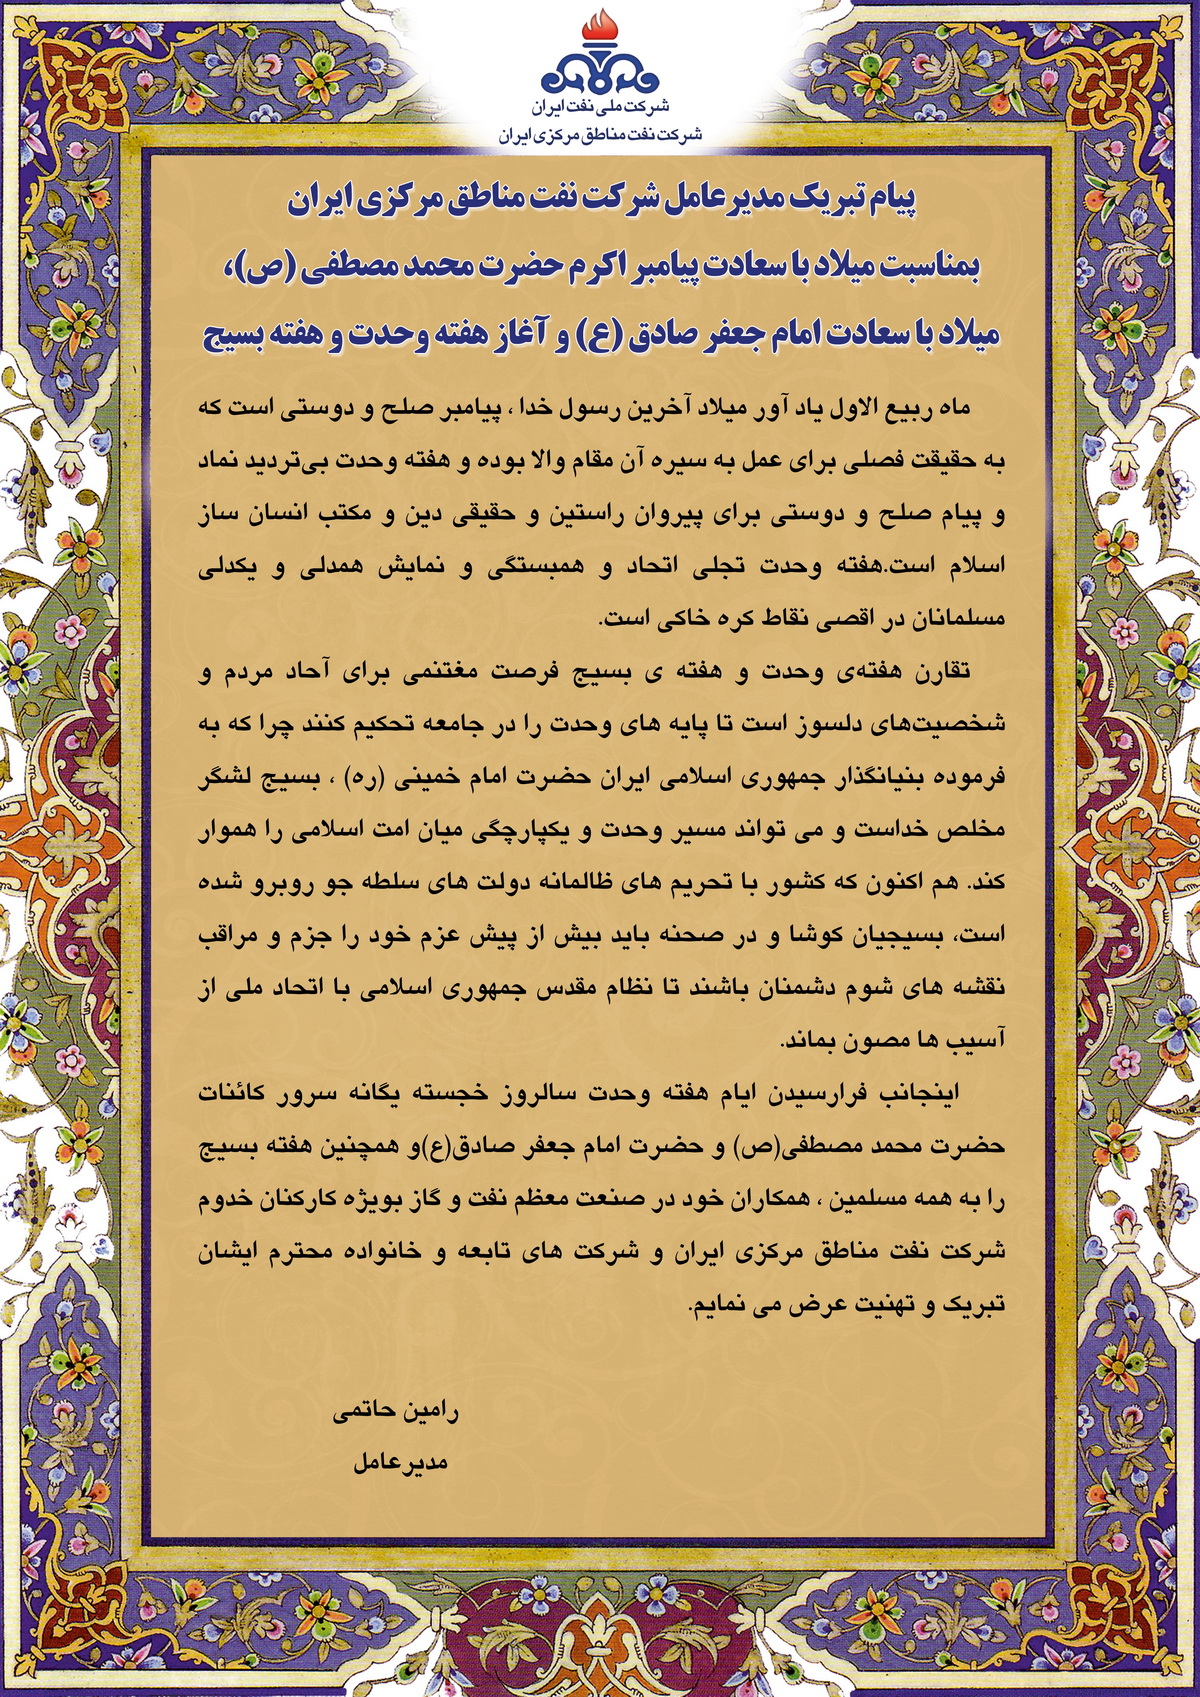 شرکت ملی نفت ایران
شرکت نفت مناطق مرکزی ایران
پیام تبریک مدیرعامل شرکت نفت مناطق مرکزی ایران
بمناسبت میلاد با سعادت پیامبر اکرم حضرت محمد مصطفی (ص)،
میلاد با سعادت امام جعفر صادق (ع) و آغاز هفته وحدت و هفته بسیج
ماه ربیع الاول یاد آور میلاد آخرین رسول خدا ، پیامبر صلح و دوستی است که
به حقیقت فصلی برای عمل به سیره آن مقام والا بوده و هفته وحدت بی‌تردید نماد
و پیام صلح و دوستی برای پیروان راستین و حقیقی دین و مکتب انسان ساز
اسلام است.هفته وحدت تجلی اتحاد و همبستگی و نمایش همدلی و یکدلی
مسلمانان در اقصی نقاط کره خاکی است.
تقارن هفته‌ی وحدت و هفته ی بسیج فرصت مغتنمی برای آحاد مردم و
شخصیت‌های دلسوز است تا پایه های وحدت را در جامعه تحکیم کنند چرا که به
فرموده بنیانگذار جمهوری اسلامی ایران حضرت امام خمینی (ره) ، بسیج لشگر
مخلص خداست و می تواند مسیر وحدت و یکپارچگی میان امت اسلامی را هموار
کند. هم اکنون که کشور با تحریم های ظالمانه دولت های سلطه جو روبرو شده
است، بسیجیان کوشا و در صحنه باید بیش از پیش عزم خود را جزم و مراقب
نقشه های شوم دشمنان باشند تا نظام مقدس جمهوری اسلامی با اتحاد ملی از
آسیب ها مصون بماند.
اینجانب فرارسیدن ایام هفته وحدت سالروز خجسته یگانه سرور کائنات
حضرت محمد مصطفی(ص) و حضرت امام جعفر صادق(ع)و همچنین هفته بسیج
را به همه مسلمین ، همکاران خود در صنعت معظم نفت و گاز بویژه کارکنان خدوم
شرکت نفت مناطق مرکزی ایران و شرکت های تابعه و خانواده محترم ایشان
تبریک و تهنیت عرض می نمایم.
رامین حاتمی
مدیرعامل